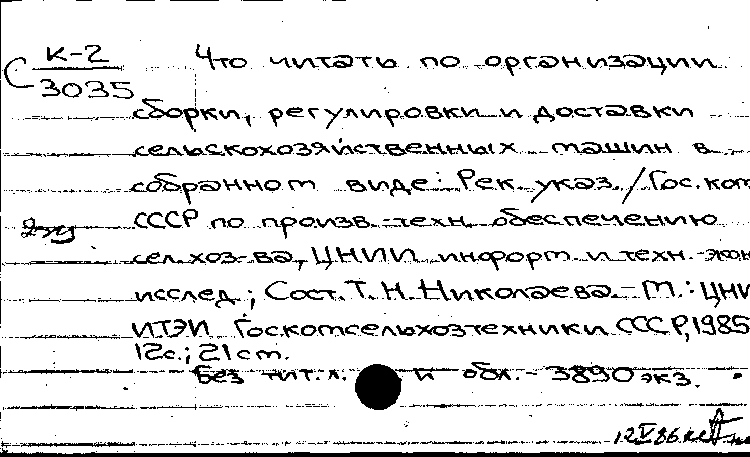 С К-2
3035
Что читать по организации
сборки, регулировки и доставки
сельскохозяйственных машин в
собранном виде: Рек. указ. / Гос. ком
СССР по произв.-техн. обеспечению
2эу
сел. хоз-ва, ЦНИИ информ. и техн.-экон
исслед.; Сост. Т. Н. Николаева. - М.: ЦНИ
ИТЭИ Госкомсельхозтехники СССР, 1985
12с.; 21 см.
Без тит. л. и обл. - 3890 экз.
12 V 86